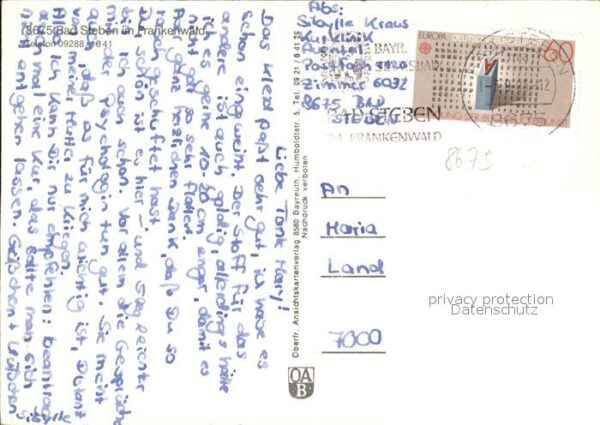 8675 Bad Steben im Frankenwald
Telefon 09288
Abs:
Sibylle Kraus
Kurklinik
Auental
Postfach 1120
Zimmer 6032
8675 BAD
STEBEN
BAYR.
BAD STEBEN
IM FRANKENWALD
EUROPA
60
8675
Liebe Tante Mary!
Das Kleid paßt sehr gut, ich habe es
schon eingeweiht. Der Stoff für das
andere ist auch goldig, allerdings hätte
ich es gerne 10-20 cm enger, damit es
nicht gar so sehr flattert.
Ganz herzlichen Dank, daß Du so
rasch geschuftet hast.
Schön ist es hier - und
ich auch schon. Vor allem die Gespräche
der Psychologin tun gut. Sie meint
daß es für mich wichtig ist, Distanz
meiner Mutter zu kriegen.
Ich kann Dir nur empfehlen: beantrag
mal eine Kur, das sollte man sich
entgehen lassen. Grüßchen + Küßchen
Sibylle
Oberfr. Ansichtskartenverlag 8580 Bayreuth, Humboldtstr. 5, Tel. 09 21 / 6 41 29
Nachdruck verboten
OA
B
An
Maria
Land
7000
privacy protection
Datenschutz